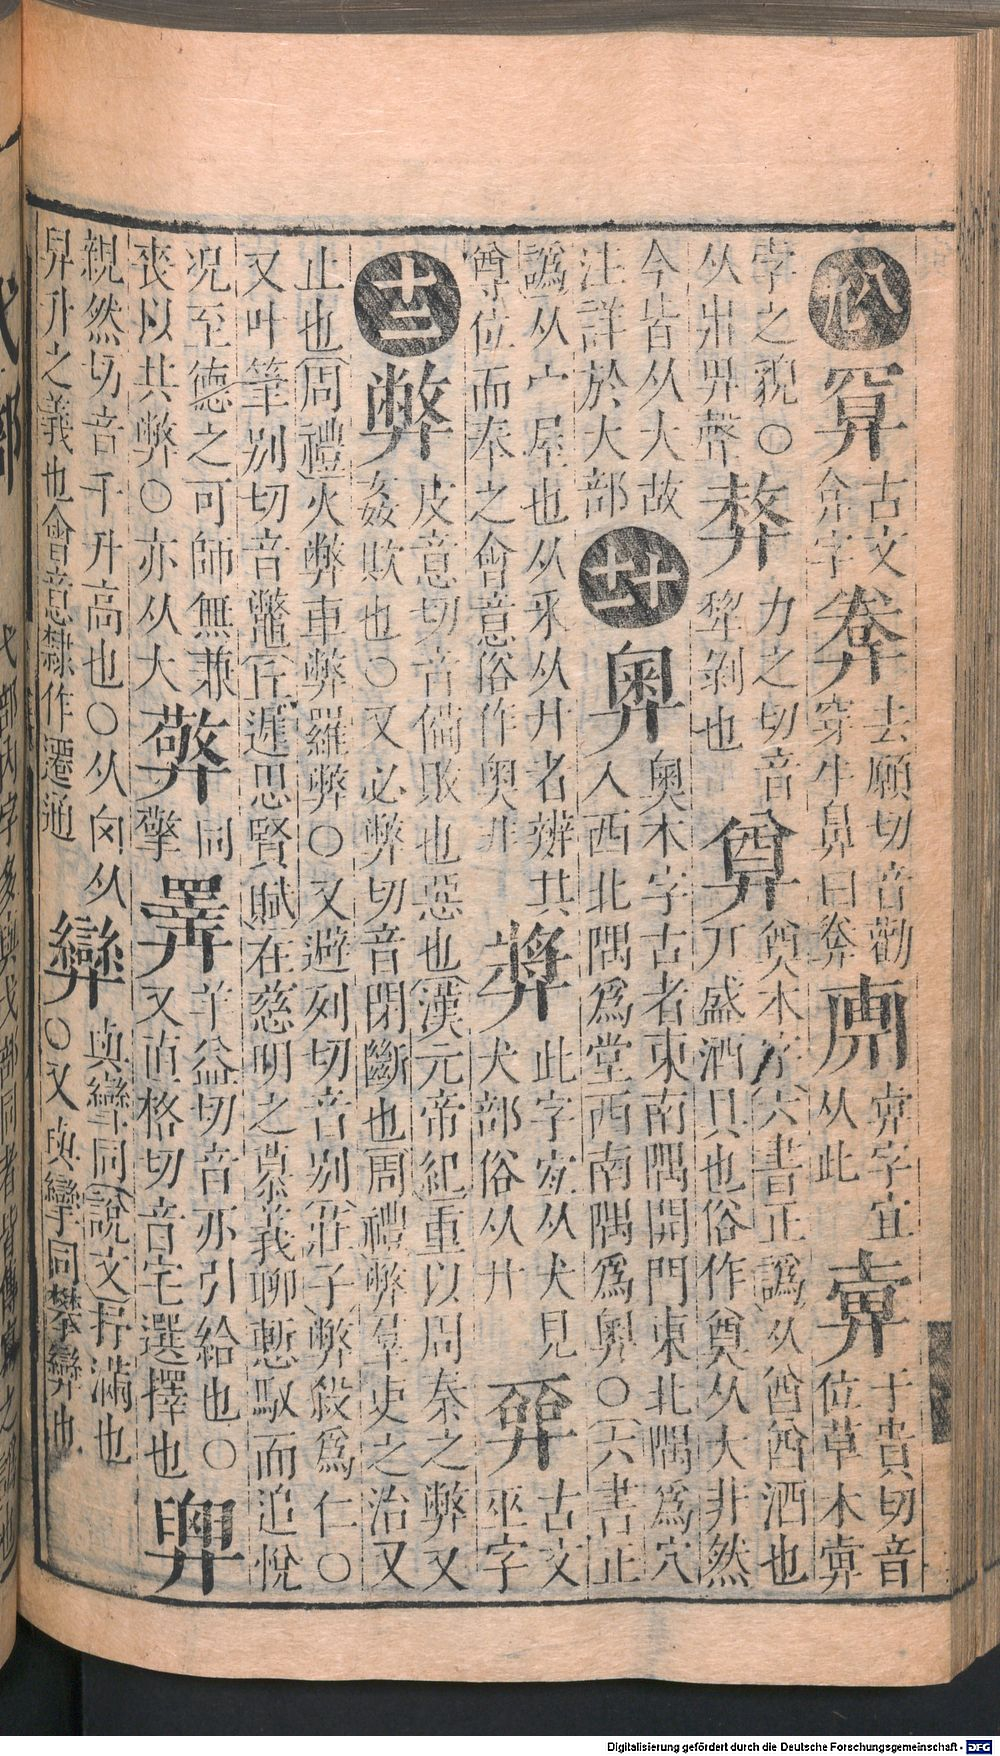 八九 古文弇字 去願切音勸穿牛鼻曰桊 字宜从此 于貴切音位草木𢍐
孛之貌○从𣎵畀聲 力之切音犛剝也 奠本字六書正譌从酋酋酒也丌盛酒具也俗作奠从大非然
今皆从大故注詳於大部 十十一 奧 奥本字古者東南隅開門東北隅爲穴入西北隅爲堂西南隅爲奥○六書正
譌从宀屋也从釆从廾者辨其尊位而奉之會意俗作奥非 奬 此字宜从犬見犬部俗从廾 古文巫字
十二 弊 皮意切音俻敗也惡也漢元帝紀重以周秦之弊又姦欺也○又必弊切音閉斷也周禮弊羣吏之治又
止也周禮火弊車弊羅弊○又避列切音別莊子弊殺爲仁○又叶筆別切音鷩丘遲思賢賦在慈明之慕義聊暫馭而追悅
况至德之可師無兼喪以共弊○亦从大 同擎 羊益切音亦引給也○又直格切音宅選擇也
親然切音千升高也○从囟从舁升之義也會意隸作遷通 與彎同說文抒滿也○又與孿同攀也
Digitalisierung gefördert durch die Deutsche Forschungsgemeinschaft - DFG